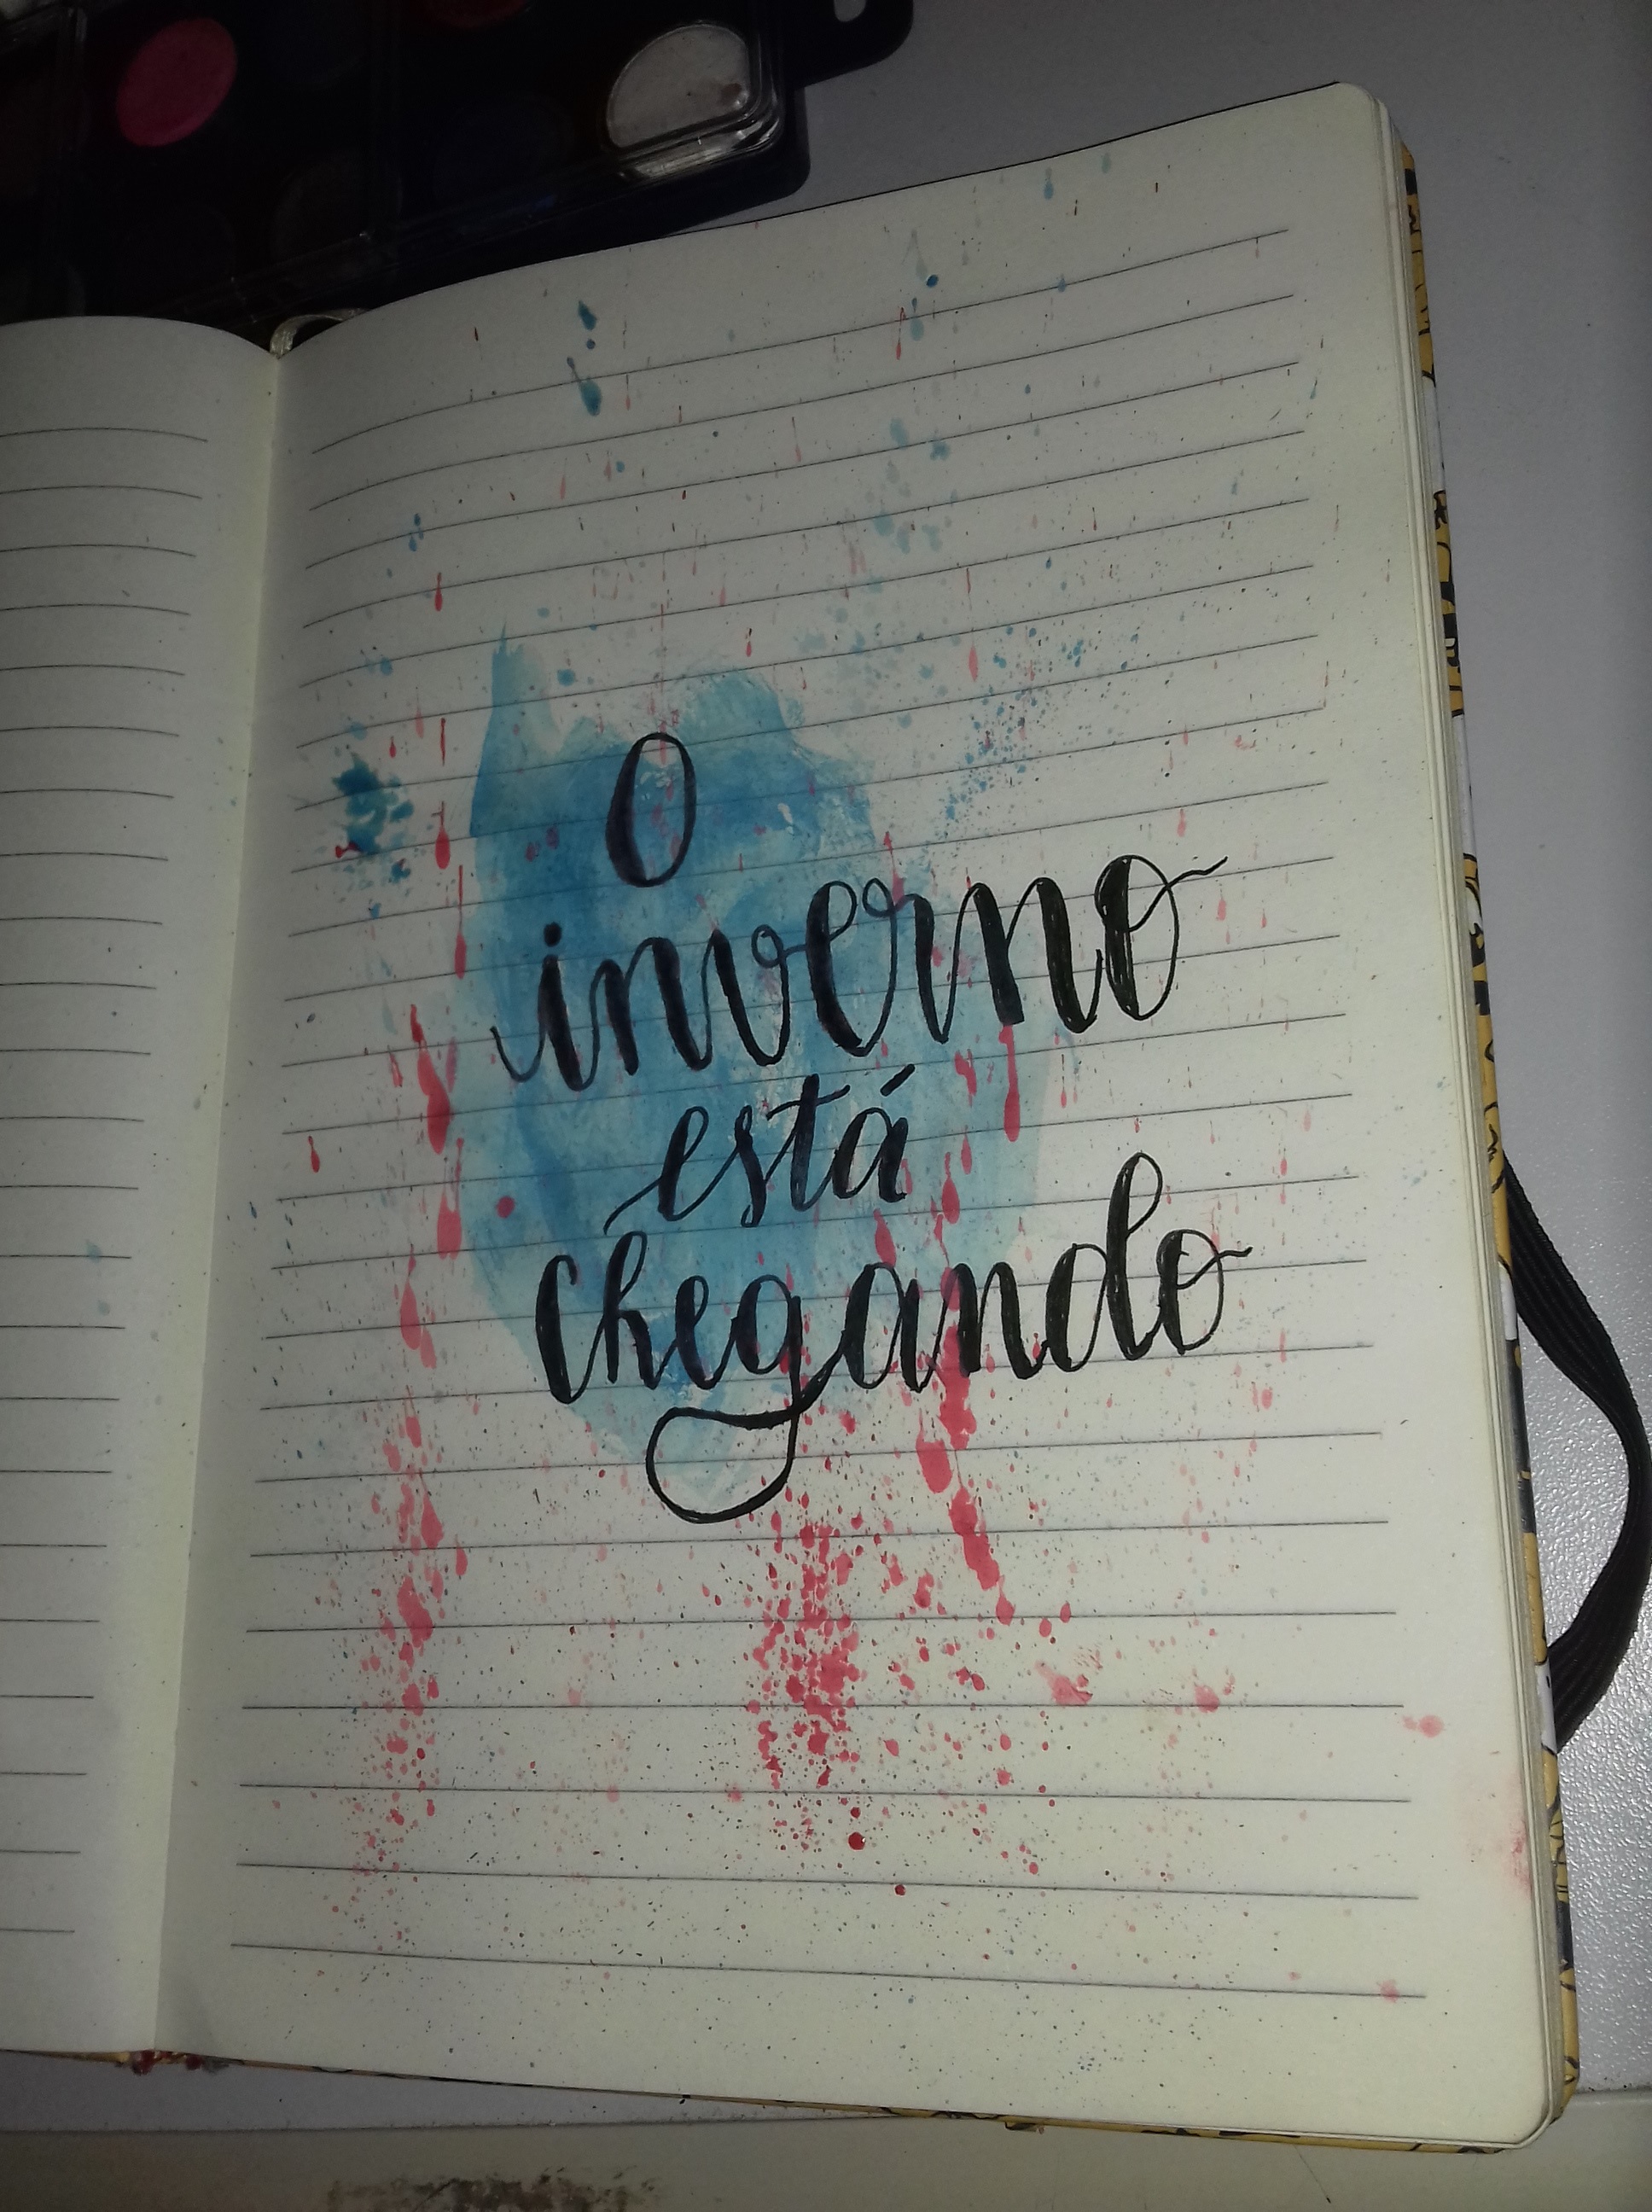 O
inverno
está
chegando